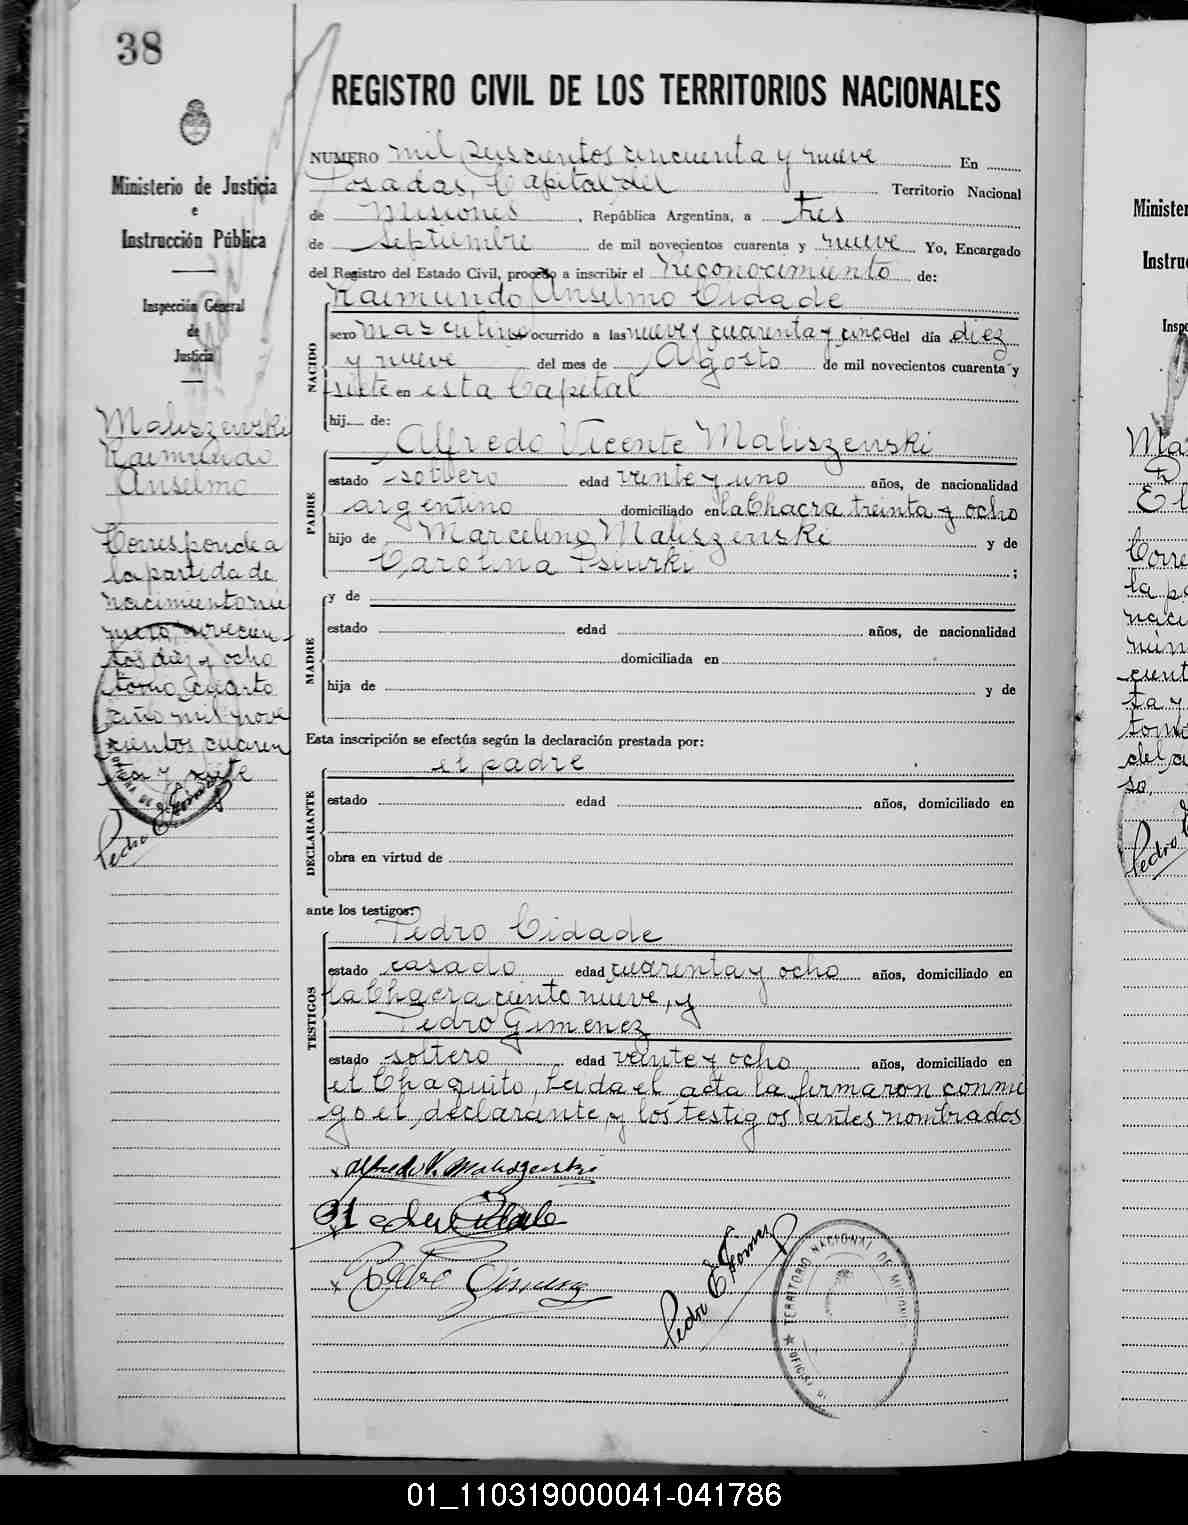 38
Ministerio de Justicia
e
Instrucción Pública
Inspección General
de
Justicia
Maliszewski
Raimundo
Anselmo
Corresponde a
la partida de
nacimiento nú
mero, novecien-
tos diez y ocho
tomo cuarto
año mil nove
cientos cuaren
ta y siete
Pedro E Gomez
REGISTRO CIVIL DE LOS TERRITORIOS NACIONALES
NUMERO mil seiscientos cincuenta y nueve En
Posadas, Capital del Territorio Nacional
de Misiones, República Argentina, a tres
de Septiembre de mil novecientos cuarenta y nueve Yo, Encargado
del Registro del Estado Civil, procedo a inscribir el Reconocimiento de:
Raimundo Anselmo Cidade
NACIDO
sexo masculino ocurrido a las nueve y cuarenta y cinco del día diez
y nueve del mes de Agosto de mil novecientos cuarenta y
siete en esta Capital
hij de:
Alfredo Vicente Maliszewski
PADRE
estado soltero edad veinte y uno años, de nacionalidad
argentino domiciliado en la Chacra treinta y ocho
hijo de Marcelino Maliszewski y de
Carolina Psiurki ;
MADRE
y de
estado edad años, de nacionalidad
domiciliada en
hija de y de
Esta inscripción se efectúa según la declaración prestada por:
el padre
DECLARANTE
estado edad años, domiciliado en
obra en virtud de
ante los testigos:
Pedro Cidade
TESTIGOS
estado casado edad cuarenta y ocho años, domiciliado en
la Chacra ciento nueve, y
Pedro Gimenez
estado soltero edad veinte y ocho años, domiciliado en
el Chaquito, Leida el acta la firmaron conmi
go el declarante, y los testigos antes nombrados
x Alfredo V. Maliszewski
x Pedro Gimenez
Pedro E Gomez
TERRITORIO NACIONAL DE MISIONES
Minister
Instru
Inspe
Ma
El
Corre
la pa
naci
núm
cient
ta y
tomo
del a
so.
Pedro
01_110319000041-041786